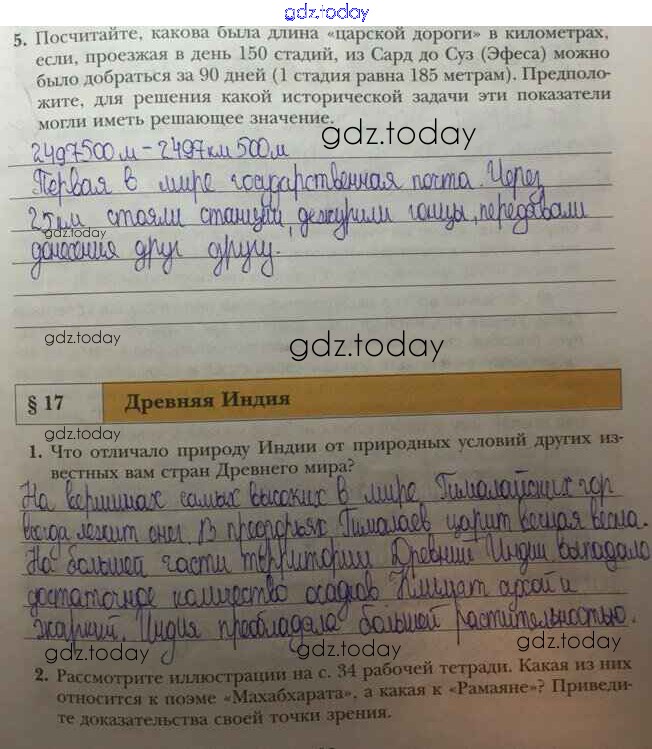 gdz.today
5. Посчитайте, какова была длина «царской дороги» в километрах,
если, проезжая в день 150 стадий, из Сард до Суз (Эфеса) можно
было добраться за 90 дней (1 стадия равна 185 метрам). Предполо-
жите, для решения какой исторической задачи эти показатели
могли иметь решающее значение.
gdz.today
2497500 м – 2497 км 500 м
Первая в мире государственная почта. Через
25 км стояли станции, дежурили гонцы, передавали
gdz.today
донесения друг другу.
gdz.today
gdz.today
§ 17 Древняя Индия
gdz.today
1. Что отличало природу Индии от природных условий других из-
вестных вам стран Древнего мира?
На вершинах самых высоких в мире Гималайских гор
всегда лежит снег. В предгорьях Гималаев царит вечная весна.
На большей части территории Древние Индии выпадало
достаточное количество осадков Климат сухой и
жаркий. Индия преобладала большой растительностью.
gdz.today gdz.today gdz.today
2. Рассмотрите иллюстрации на с. 34 рабочей тетради. Какая из них
относится к поэме «Махабхарата», а какая к «Рамаяне»? Приведи-
те доказательства своей точки зрения.